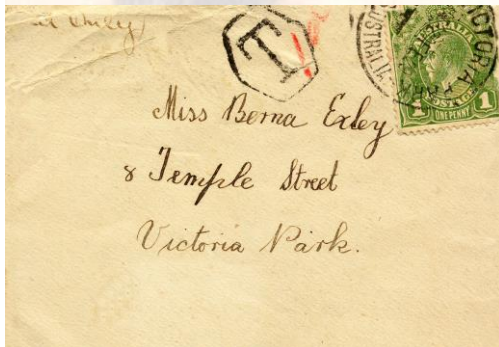 T
VICTORIA PARK
AUSTRALIA
AUSTRALIA
POSTAGE
1 1
ONE PENNY
Miss Berna Exley
8 Temple Street
Victoria Park.